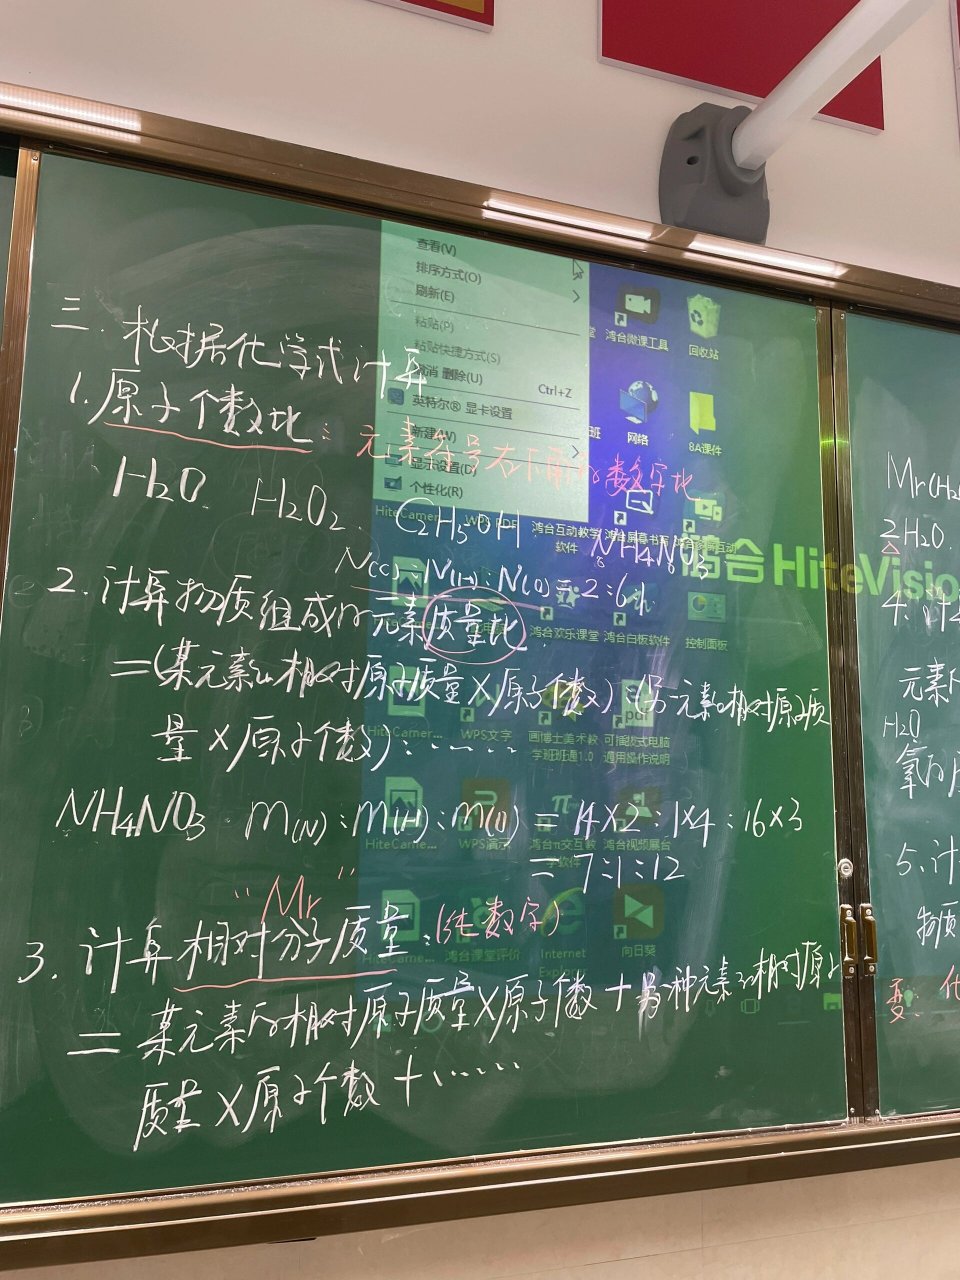 查看(V)
排序方式(O)
刷新(E)
粘贴(P)
粘贴快捷方式(S)
删除(U) Ctrl+Z
英特尔® 显卡设置
新建(W)
显示设置(D)
个性化(R)
鸿合微课工具
回收站
网络
8A课件
HiteCamer...
WPS PDF
鸿合互动教学软件
鸿合屏幕书写
控制面板
鸿合欢乐课堂
鸿合白板软件
鸿合HiteVision
HiteCamer...
WPS文字
画博士美术教学班班通1.0
可插拔式电脑通用操作说明
HiteCame...
WPS演示
鸿合π交互教学软件
鸿合视频展台
鸿合课堂评价
Internet Explorer
向日葵
三.根据化学式计算
1.原子个数比:元素符号右下角的数字比
H2O H2O2. C2H5OH NH4NO3
N(C):N(H):N(O)=2:6:1
2.计算物质组成的元素质量比
=(某元素的相对原子质量×原子个数):(另一元素的相对原子质
量×原子个数):……
NH4NO3 m(N):m(H):m(O)=14×2:1×4:16×3
=7:1:12
"Mr"
3.计算相对分子质量:(纯数字)
=某元素的相对原子质量×原子个数+另一种元素的相对原子
质量×原子个数+……
Mr(H2
2H2O
4.计
元素
H2O
氧的
5.计
物质
变:化